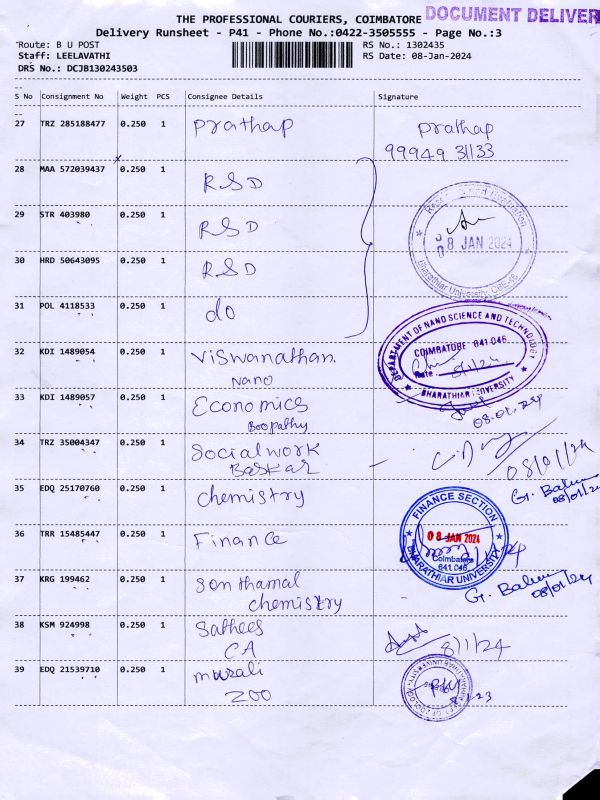 THE PROFESSIONAL COURIERS, COIMBATORE DOCUMENT DELIVER
Delivery Runsheet - P41 - Phone No.:0422-3505555 - Page No.:3
Route: B U POST RS No.: 1302435
Staff: LEELAVATHI RS Date: 08-Jan-2024
DRS No.: DCJB130243503
S No Consignment No Weight PCS Consignee Details Signature
27 TRZ 285188477 0.250 1 Prathap Prathap
99949 31133
28 MAA 572039437 0.250 1 RSD
29 STR 403980 0.250 1 RSD
08 JAN 2024
Bharathiar University, CBE-46
30 HRD 50643095 0.250 1 RSD
31 POL 4118533 0.250 1 do
DEPARTMENT OF NANO SCIENCE AND TECHNOLOGY
COIMBATORE 641 046
Date 8/1/24
BHARATHIAR UNIVERSITY
32 KDI 1489054 0.250 1 Viswanathan
Nano
33 KDI 1489057 0.250 1 Economics
Boopathy
08.01.24
34 TRZ 35004347 0.250 1 Socialwork
Baskar
08/01/24
35 EDQ 25170760 0.250 1 chemistry
08/01/24
FINANCE SECTION
08 JAN 2024
Coimbatore
641 046
BHARATHIAR UNIVERSITY
36 TRR 15485447 0.250 1 Finance
37 KRG 199462 0.250 1 Santhamal
chemistry
08/01/24
38 KSM 924998 0.250 1 Sathees
CA
8/1/24
39 EDQ 21539710 0.250 1 murali
ZOO